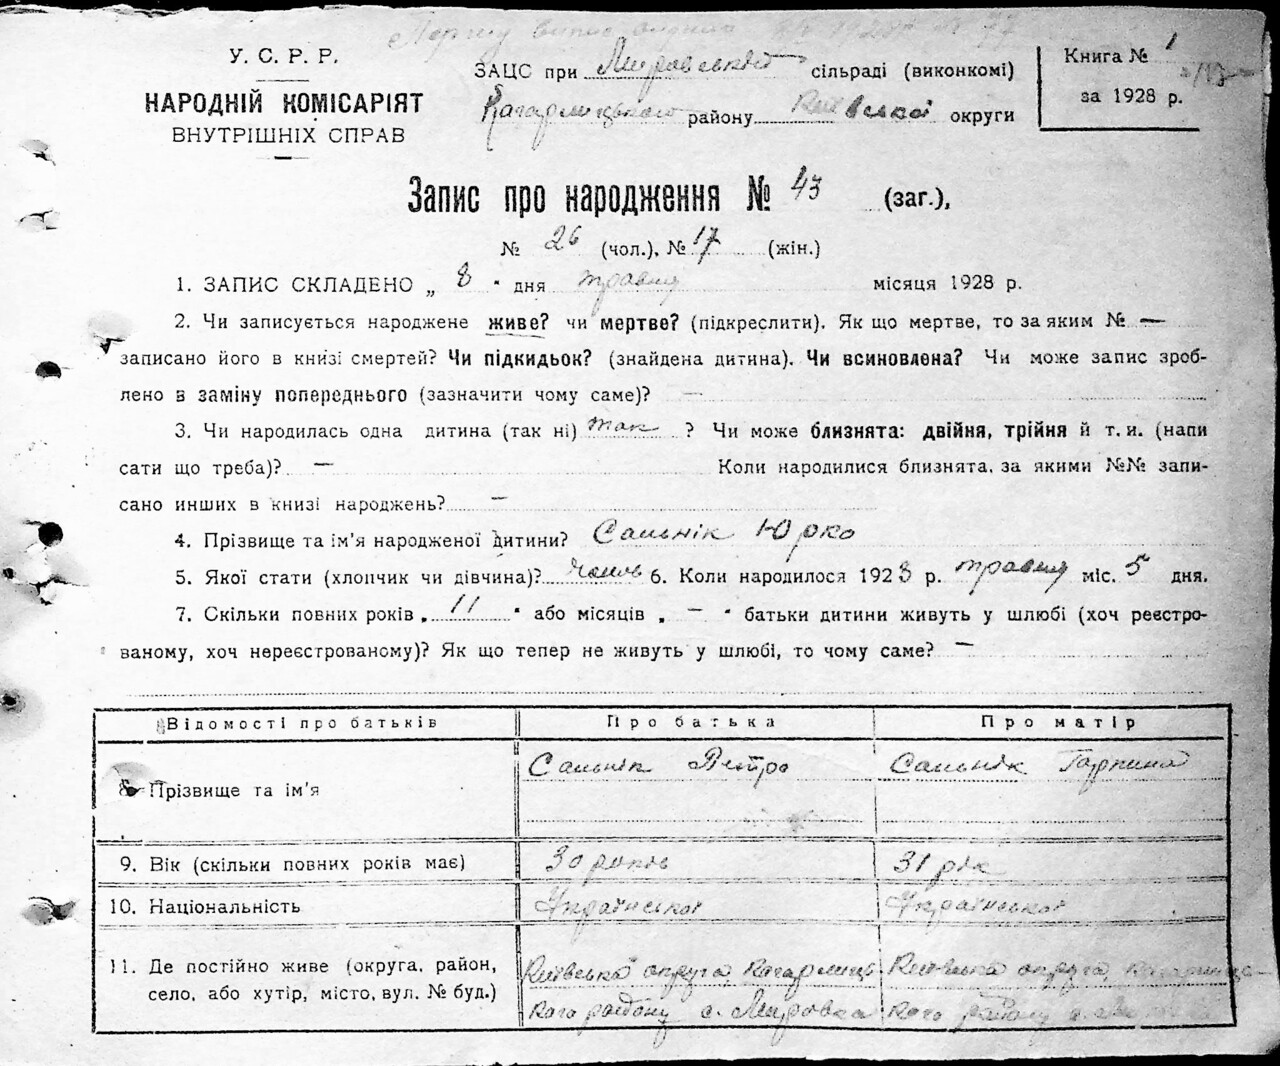 Першу випис видано 8/V 1928 р. № 77
У. С. Р. Р.
НАРОДНІЙ КОМІСАРІЯТ
ВНУТРІШНІХ СПРАВ
ЗАЦС при Мировській сільраді (виконкомі)
Кагарлицького району Київської округи
Книга № 1
за 1928 р.
Запис про народження № 43 (заг.),
№ 26 (чол.), № 17 (жін.)
1. ЗАПИС СКЛАДЕНО „ 8 " дня травня місяця 1928 р.
2. Чи записується народжене живе? чи мертве? (підкреслити). Як що мертве, то за яким № —
записано його в книзі смертей? Чи підкидьок? (знайдена дитина). Чи всиновлена? Чи може запис зроб-
лено в заміну попереднього (зазначити чому саме)? —
3. Чи народилась одна дитина (так ні) так ? Чи може близнята: двійня, трійня й т. и. (напи
сати що треба)? — Коли народилися близнята, за якими №№ запи-
сано инших в книзі народжень? —
4. Прізвище та ім'я народженої дитини? Сальнік Юрко
5. Якої стати (хлопчик чи дівчина)? 6. Коли народилося 1928 р. травня міс. 5 дня.
7. Скільки повних років „ 11 " або місяців „ — " батьки дитини живуть у шлюбі (хоч реєстро-
ваному, хоч нереєстрованому)? Як що тепер не живуть у шлюбі, то чому саме? —
Відомості про батьків Про батька Про матір
8. Прізвище та ім'я Сальнік Петро Сальнік Гарпина
9. Вік (скільки повних років має) 30 років 31 рік
10. Національність Української Української
11. Де постійно живе (округа, район, Київська округа, Кагарлиць- Київська округа, Кагарлиць-
село, або хутір, місто, вул. № буд.) кого району с. Мировка кого району с. Мировка